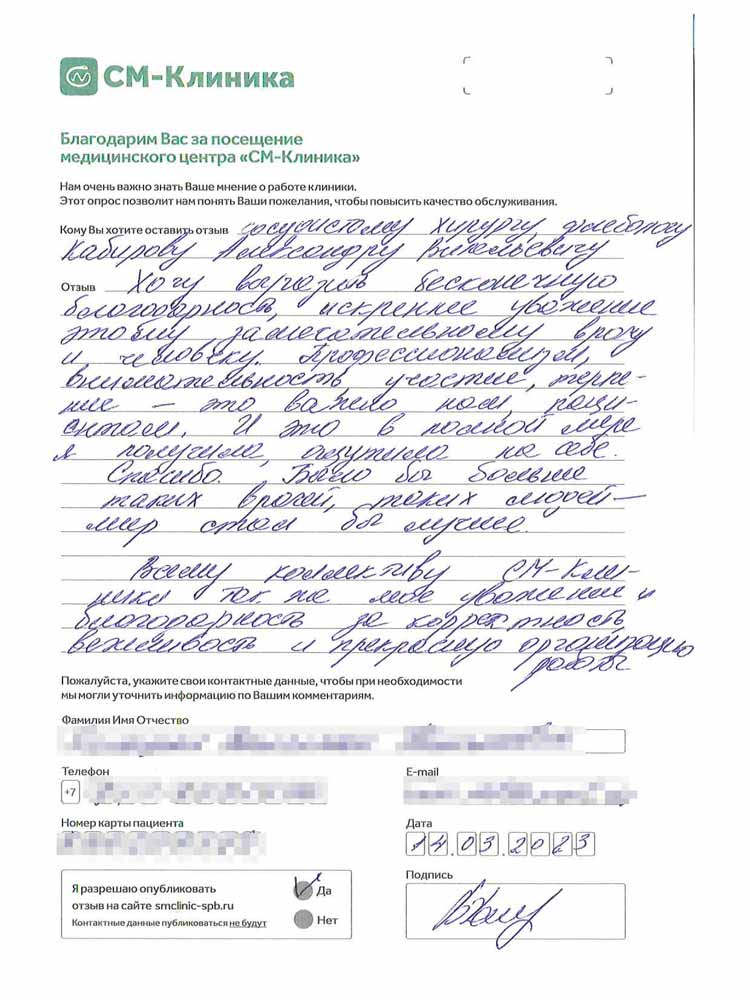 СМ-Клиника
Благодарим Вас за посещение
медицинского центра «СМ-Клиника»
Нам очень важно знать Ваше мнение о работе клиники.
Этот опрос позволит нам понять Ваши пожелания, чтобы повысить качество обслуживания.
Кому Вы хотите оставить отзыв сосудистому хирургу, флебологу
Кабирову Александру Витальевичу
Отзыв Хочу выразить бесконечную
благодарность, искреннее уважение
этому замечательному врачу
и человеку. Профессионализм,
внимательность, участие, терпе-
ние – это важно нам, паци-
ентам. И это в полной мере
я получила, ощутила на себе.
Спасибо. Было бы больше
таких врачей, таких людей –
мир стал бы лучше.
Всему коллективу СМ-Кли-
ники так же моё уважение и
благодарность за корректность,
вежливость и прекрасную организацию
работы
Пожалуйста, укажите свои контактные данные, чтобы при необходимости
мы могли уточнить информацию по Вашим комментариям.
Фамилия Имя Отчество
Телефон E-mail
+7
Номер карты пациента Дата
14.03.2023
Я разрешаю опубликовать Да Подпись
отзыв на сайте smclinic-spb.ru
Контактные данные публиковаться не будут Нет